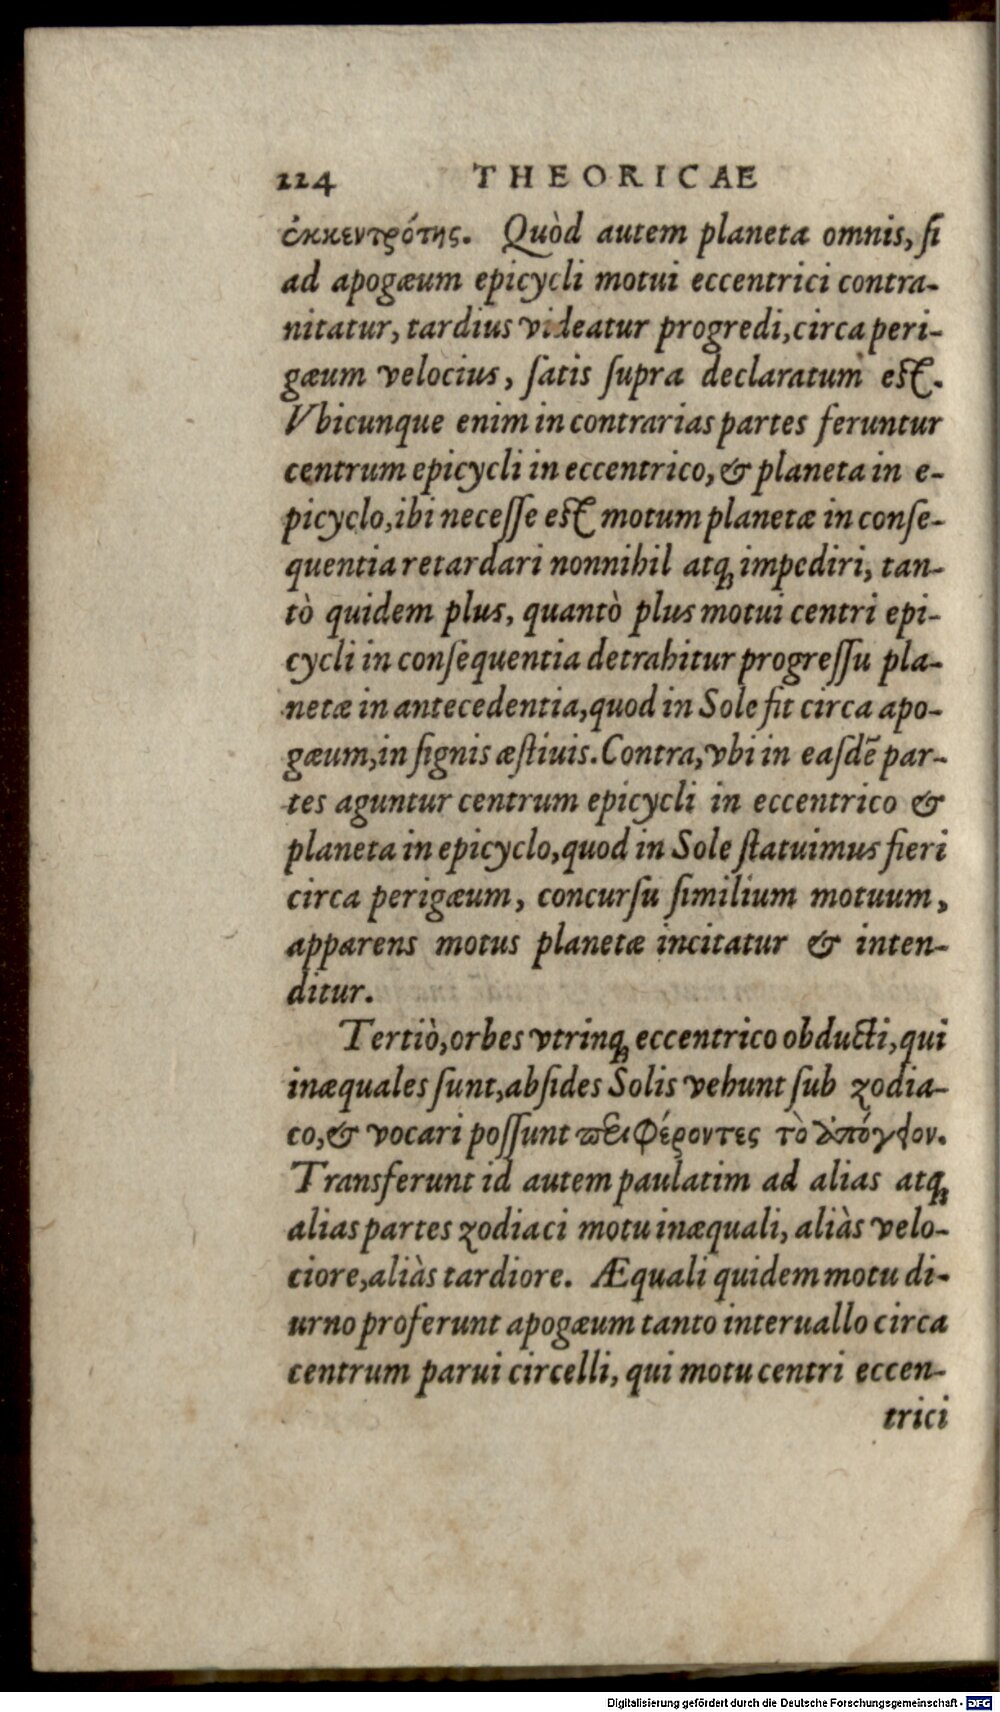 224 THEORICAE
ἐκκεντρότης. Quòd autem planeta omnis, ſi
ad apogæum epicycli motui eccentrici contra-
nitatur, tardius videatur progredi, circa peri-
gæum velocius, ſatis ſupra declaratum eſt.
Vbicunque enim in contrarias partes feruntur
centrum epicycli in eccentrico, & planeta in e-
picyclo, ibi neceſſe eſt motum planetæ in conſe-
quentia retardari nonnihil atq; impediri, tan-
tò quidem plus, quantò plus motui centri epi-
cycli in conſequentia detrahitur progreſſu pla-
netæ in antecedentia, quod in Sole fit circa apo-
gæum, in ſignis æſtiuis. Contra, vbi in eaſdē par-
tes aguntur centrum epicycli in eccentrico &
planeta in epicyclo, quod in Sole ſtatuimus fieri
circa perigæum, concurſu ſimilium motuum,
apparens motus planetæ incitatur & inten-
ditur.
Tertiò, orbes vtrinq; eccentrico obducti, qui
inæquales ſunt, abſides Solis vehunt ſub zodia-
co, & vocari poſſunt περιφέροντες τὸ ἀπόγειον.
Transferunt id autem paulatim ad alias atq;
alias partes zodiaci motu inæquali, aliàs velo-
ciore, aliàs tardiore. Æquali quidem motu di-
urno proferunt apogæum tanto interuallo circa
centrum parui circelli, qui motu centri eccen-
trici
Digitalisierung gefördert durch die Deutsche Forschungsgemeinschaft - DFG